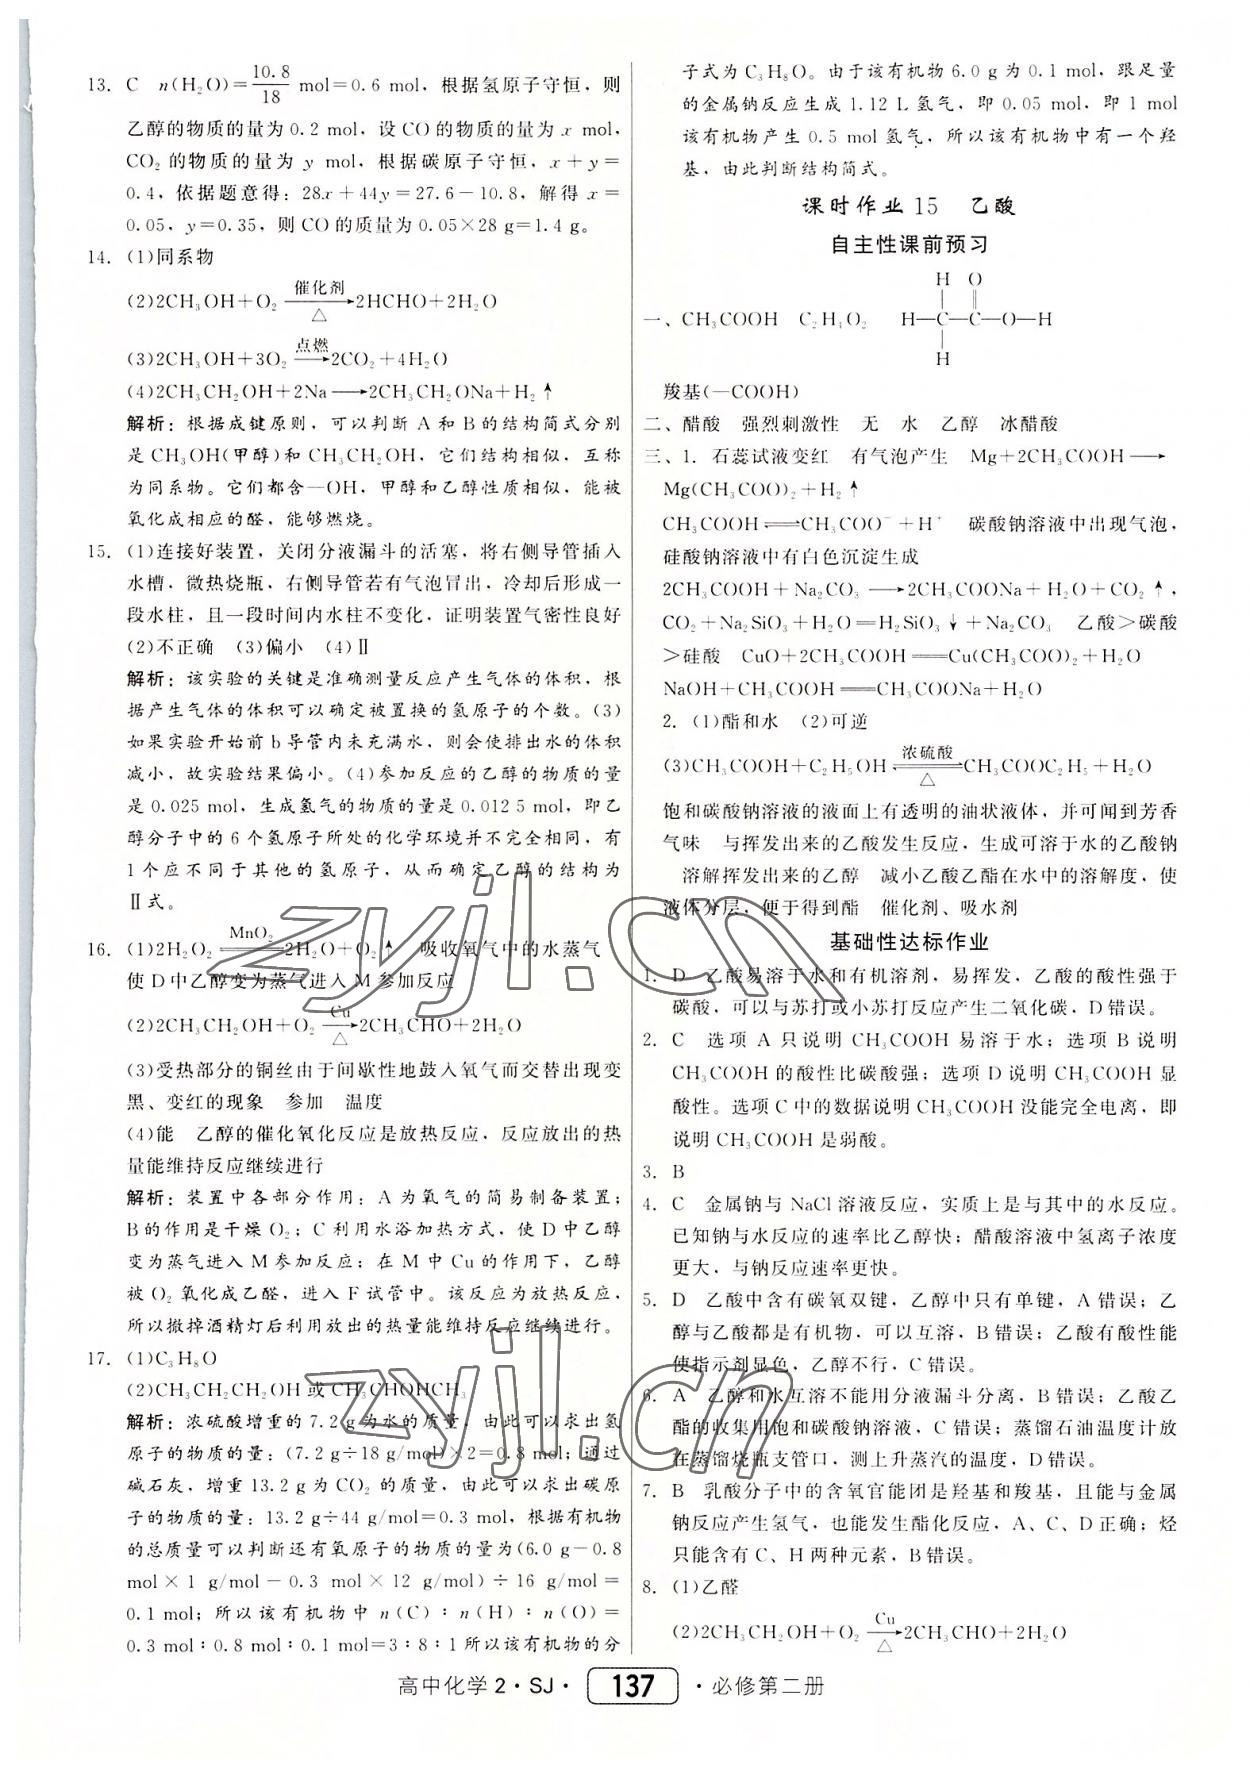 13. C n(H₂O)=10.8/18 mol=0.6 mol，根据氢原子守恒，则
乙醇的物质的量为0.2 mol，设CO的物质的量为x mol，
CO₂的物质的量为y mol，根据碳原子守恒，x+y=
0.4，依据题意得：28x+44y=27.6-10.8，解得x=
0.05，y=0.35，则CO的质量为0.05×28 g=1.4 g。
14. (1)同系物
(2)2CH₃OH+O₂ 催化剂→△ 2HCHO+2H₂O
(3)2CH₃OH+3O₂ 点燃→ 2CO₂+4H₂O
(4)2CH₃CH₂OH+2Na→2CH₃CH₂ONa+H₂↑
解析：根据成键原则，可以判断A和B的结构简式分别
是CH₃OH(甲醇)和CH₃CH₂OH，它们结构相似，互称
为同系物。它们都含—OH，甲醇和乙醇性质相似，能被
氧化成相应的醛，能够燃烧。
15. (1)连接好装置，关闭分液漏斗的活塞，将右侧导管插入
水槽，微热烧瓶，右侧导管若有气泡冒出，冷却后形成一
段水柱，且一段时间内水柱不变化，证明装置气密性良好
(2)不正确 (3)偏小 (4)Ⅱ
解析：该实验的关键是准确测量反应产生气体的体积，根
据产生气体的体积可以确定被置换的氢原子的个数。(3)
如果实验开始前b导管内未充满水，则会使排出水的体积
减小，故实验结果偏小。(4)参加反应的乙醇的物质的量
是0.025 mol，生成氢气的物质的量是0.012 5 mol，即乙
醇分子中的6个氢原子所处的化学环境并不完全相同，有
1个应不同于其他的氢原子，从而确定乙醇的结构为
Ⅱ式。
16. (1)2H₂O₂ MnO₂═ 2H₂O+O₂↑ 吸收氧气中的水蒸气
使D中乙醇变为蒸气进入M参加反应
(2)2CH₃CH₂OH+O₂ Cu→△ 2CH₃CHO+2H₂O
(3)受热部分的铜丝由于间歇性地鼓入氧气而交替出现变
黑、变红的现象 参加 温度
(4)能 乙醇的催化氧化反应是放热反应，反应放出的热
量能维持反应继续进行
解析：装置中各部分作用：A为氧气的简易制备装置；
B的作用是干燥O₂；C利用水浴加热方式，使D中乙醇
变为蒸气进入M参加反应；在M中Cu的作用下，乙醇
被O₂氧化成乙醛，进入F试管中。该反应为放热反应，
所以撤掉酒精灯后利用放出的热量能维持反应继续进行。
17. (1)C₃H₈O
(2)CH₃CH₂CH₂OH或CH₃CHOHCH₃
解析：浓硫酸增重的7.2 g为水的质量，由此可以求出氢
原子的物质的量：(7.2 g÷18 g/mol)×2=0.8 mol；通过
碱石灰，增重13.2 g为CO₂的质量，由此可以求出碳原
子的物质的量：13.2 g÷44 g/mol=0.3 mol，根据有机物
的总质量可以判断还有氧原子的物质的量为(6.0 g-0.8
mol×1 g/mol-0.3 mol×12 g/mol)÷16 g/mol=
0.1 mol；所以该有机物中n(C)∶n(H)∶n(O)=
0.3 mol∶0.8 mol∶0.1 mol=3∶8∶1所以该有机物的分
子式为C₃H₈O。由于该有机物6.0 g为0.1 mol，跟足量
的金属钠反应生成1.12 L氢气，即0.05 mol，即1 mol
该有机物产生0.5 mol氢气，所以该有机物中有一个羟
基，由此判断结构简式。
课时作业15 乙酸
自主性课前预习
H O
一、CH₃COOH C₂H₄O₂ H—C—C—O—H
H
羧基(—COOH)
二、醋酸 强烈刺激性 无 水 乙醇 冰醋酸
三、1. 石蕊试液变红 有气泡产生 Mg+2CH₃COOH→
Mg(CH₃COO)₂+H₂↑
CH₃COOH⇌CH₃COO⁻+H⁺ 碳酸钠溶液中出现气泡，
硅酸钠溶液中有白色沉淀生成
2CH₃COOH+Na₂CO₃→2CH₃COONa+H₂O+CO₂↑，
CO₂+Na₂SiO₃+H₂O═H₂SiO₃↓+Na₂CO₃ 乙酸＞碳酸
＞硅酸 CuO+2CH₃COOH═Cu(CH₃COO)₂+H₂O
NaOH+CH₃COOH═CH₃COONa+H₂O
2. (1)酯和水 (2)可逆
(3)CH₃COOH+C₂H₅OH 浓硫酸⇌△ CH₃COOC₂H₅+H₂O
饱和碳酸钠溶液的液面上有透明的油状液体，并可闻到芳香
气味 与挥发出来的乙酸发生反应，生成可溶于水的乙酸钠
溶解挥发出来的乙醇 减小乙酸乙酯在水中的溶解度，使
液体分层，便于得到酯 催化剂、吸水剂
基础性达标作业
1. D 乙酸易溶于水和有机溶剂，易挥发，乙酸的酸性强于
碳酸，可以与苏打或小苏打反应产生二氧化碳，D错误。
2. C 选项A只说明CH₃COOH易溶于水；选项B说明
CH₃COOH的酸性比碳酸强；选项D说明CH₃COOH显
酸性。选项C中的数据说明CH₃COOH没能完全电离，即
说明CH₃COOH是弱酸。
3. B
4. C 金属钠与NaCl溶液反应，实质上是与其中的水反应。
已知钠与水反应的速率比乙醇快；醋酸溶液中氢离子浓度
更大，与钠反应速率更快。
5. D 乙酸中含有碳氧双键，乙醇中只有单键，A错误；乙
醇与乙酸都是有机物，可以互溶，B错误；乙酸有酸性能
使指示剂显色，乙醇不行，C错误。
6. A 乙醇和水互溶不能用分液漏斗分离，B错误；乙酸乙
酯的收集用饱和碳酸钠溶液，C错误；蒸馏石油温度计放
在蒸馏烧瓶支管口，测上升蒸汽的温度，D错误。
7. B 乳酸分子中的含氧官能团是羟基和羧基，且能与金属
钠反应产生氢气，也能发生酯化反应，A、C、D正确；烃
只能含有C、H两种元素，B错误。
8. (1)乙醛
(2)2CH₃CH₂OH+O₂ Cu→△ 2CH₃CHO+2H₂O
高中化学2·SJ· 137 ·必修第二册
zyjl.cn
zyjl.cn